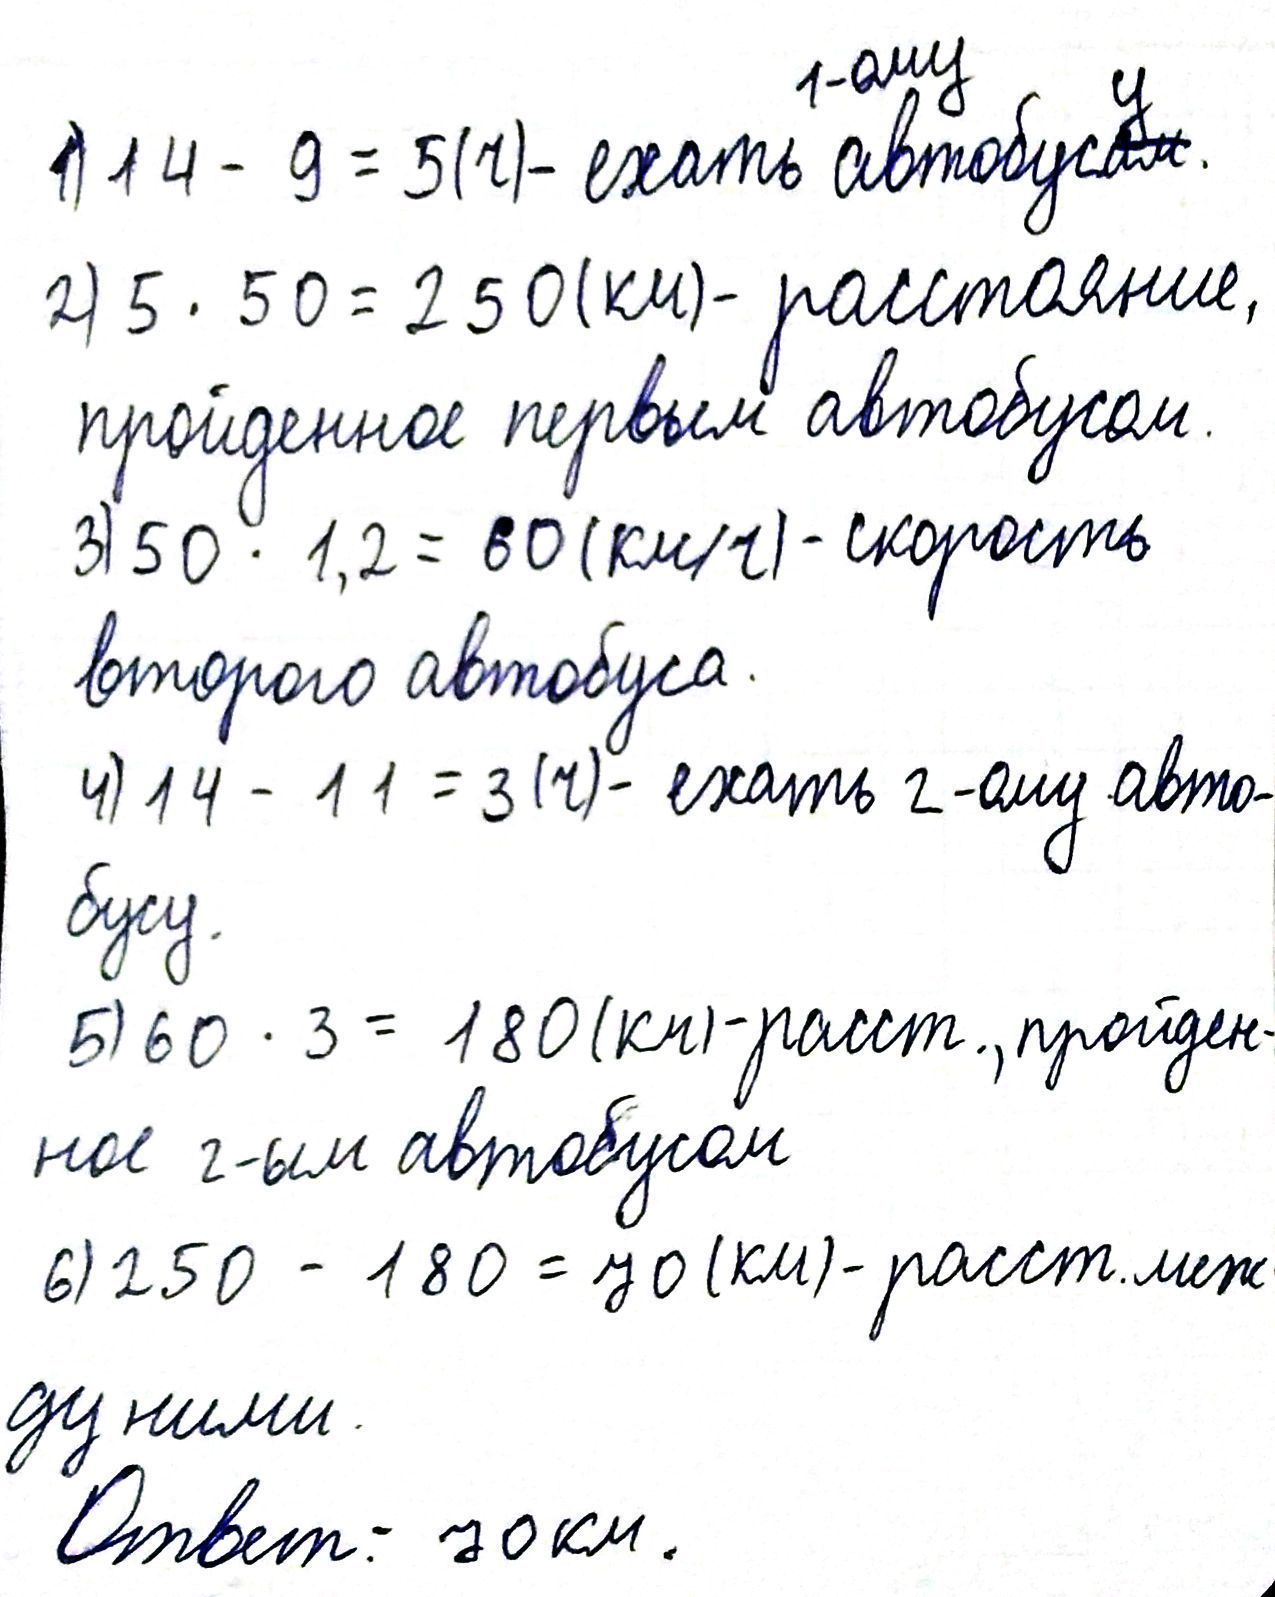 1-ому у
1) 14 - 9 = 5(ч) - ехать автобусам.
2) 5 · 50 = 250(км) - расстояние,
пройденное первым автобусом.
3) 50 · 1,2 = 60(км/ч) - скорость
второго автобуса.
4) 14 - 11 = 3(ч) - ехать 2-ому авто-
бусу.
5) 60 · 3 = 180(км) - расст., пройден-
ное 2-ым автобусом
6) 250 - 180 = 70(км) - расст. меж
ду ними.
Ответ: 70км.